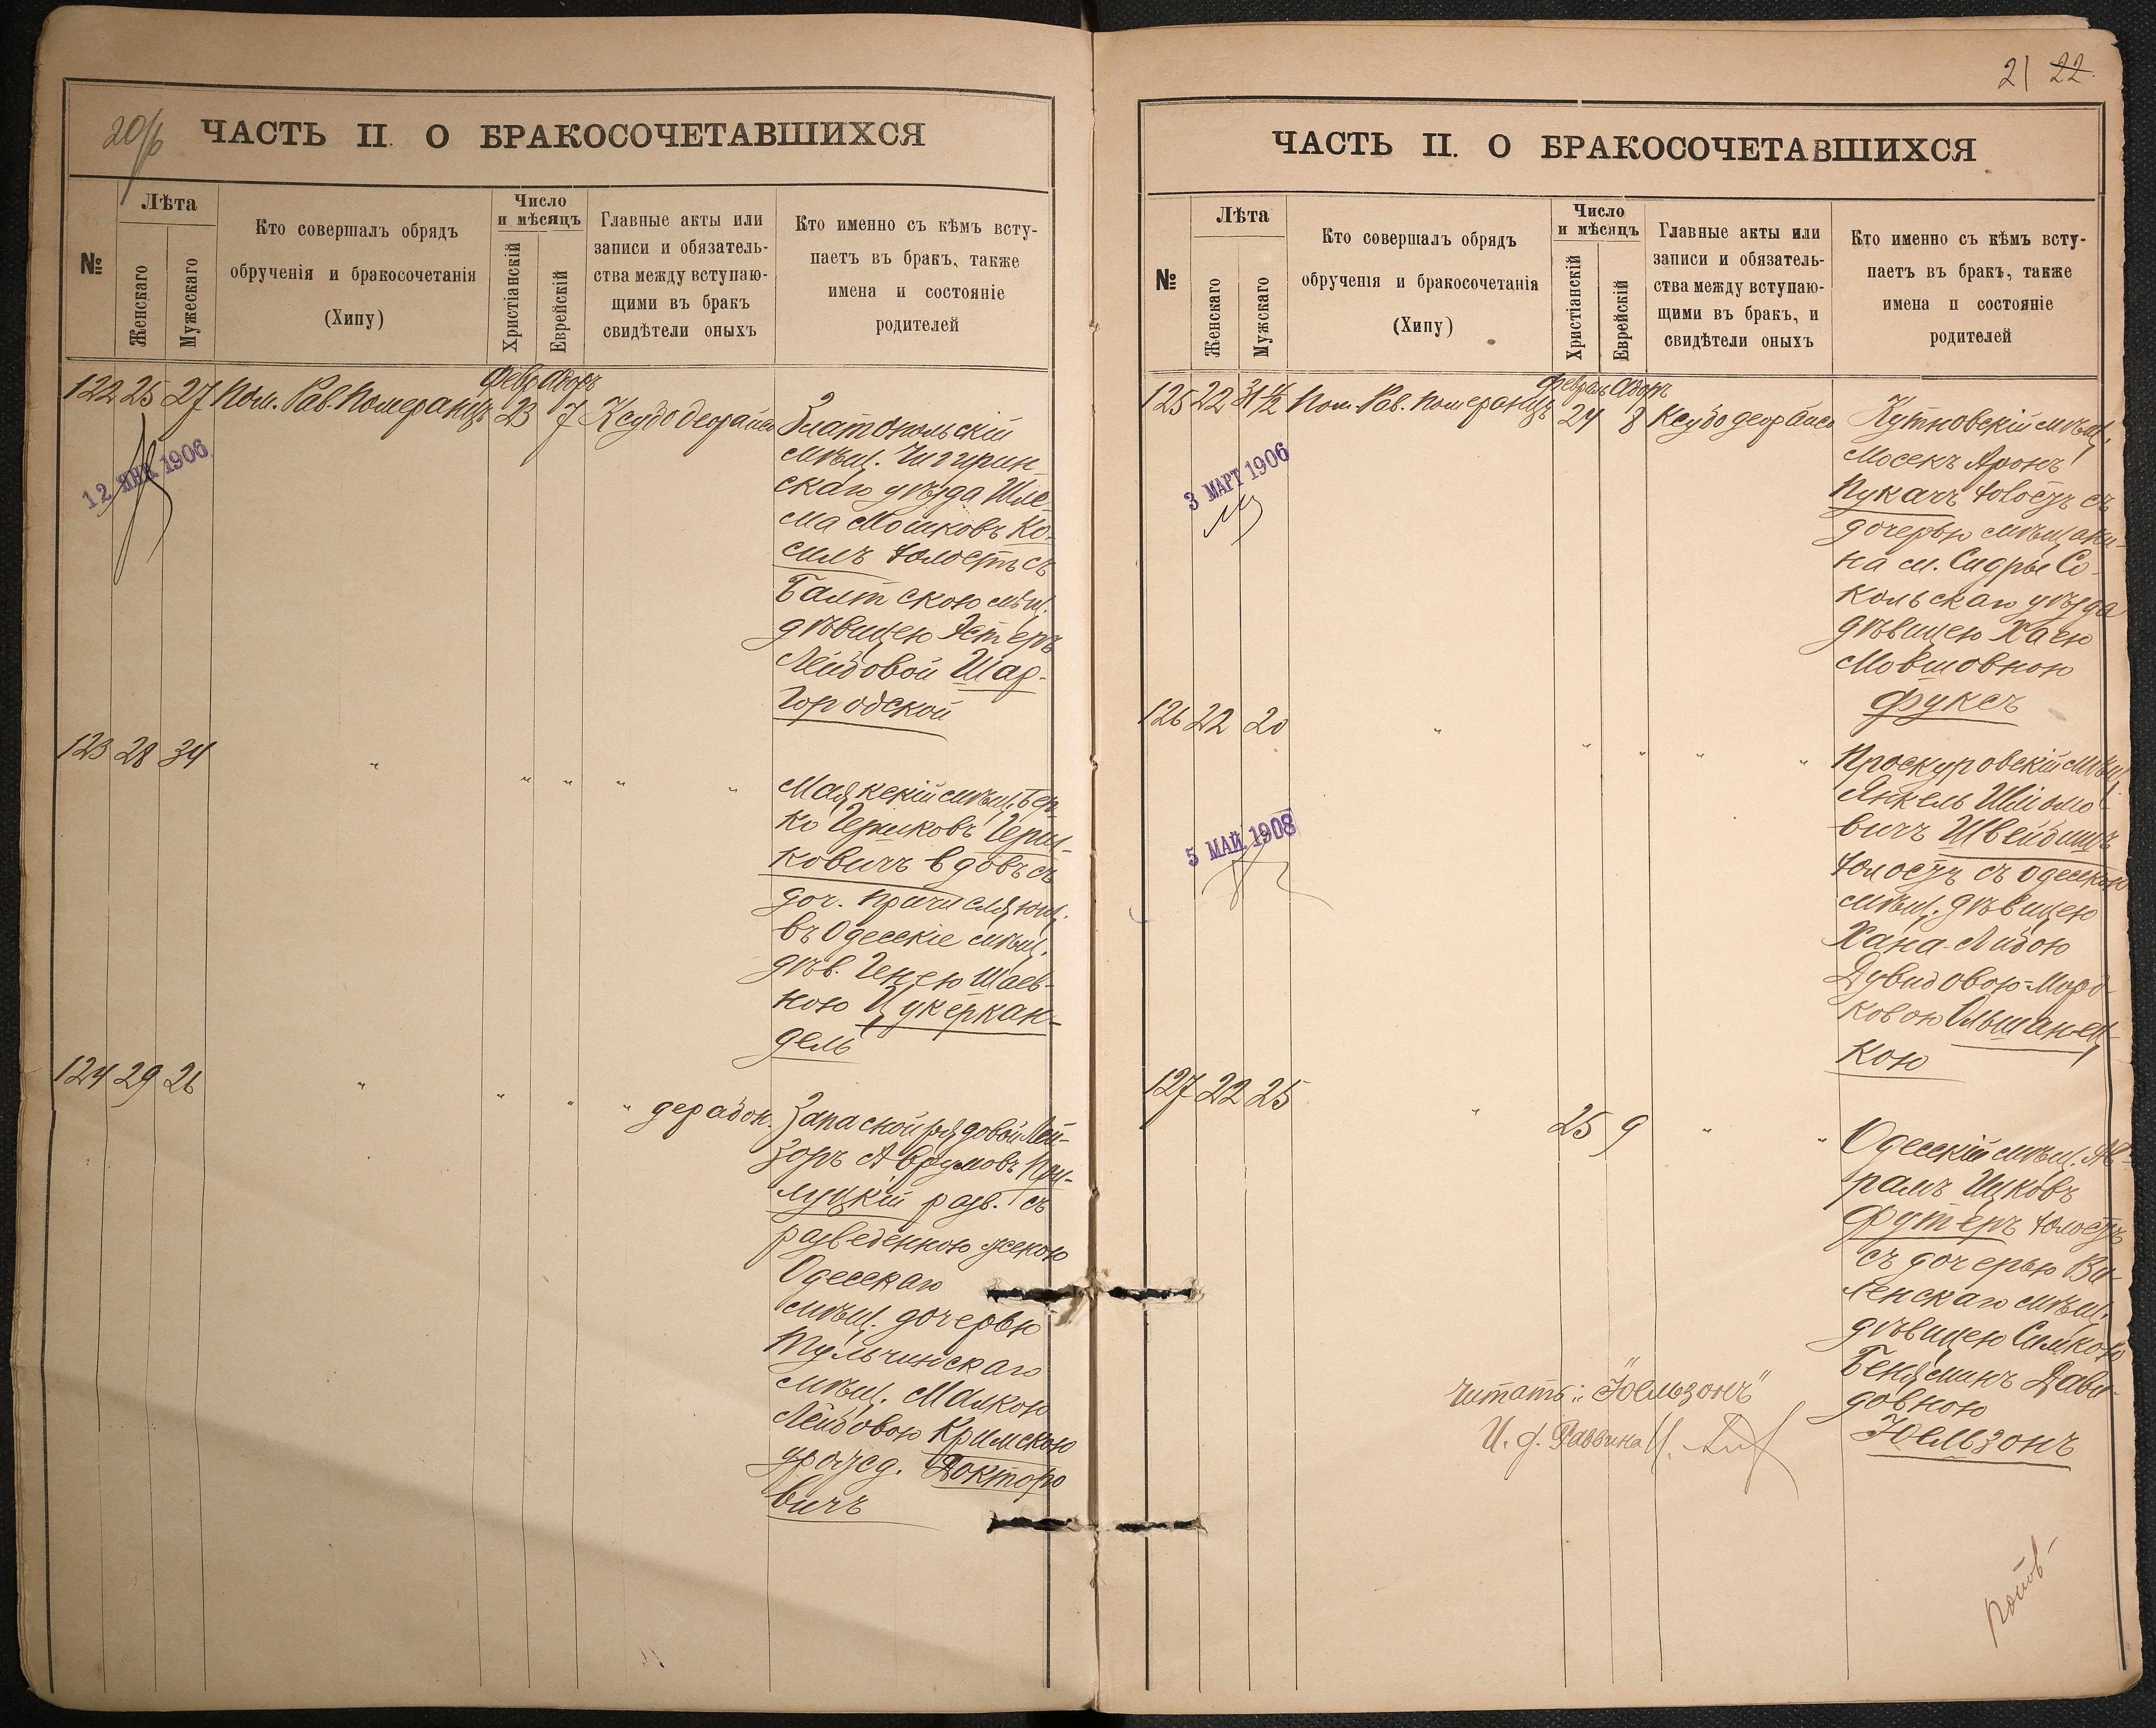 20/б
ЧАСТЬ II. О БРАКОСОЧЕТАВШИХСЯ
№
Лѣта
Женскаго
Мужескаго
Кто совершалъ обрядъ
обрученія и бракосочетанія
(Хипу)
Число
и мѣсяцъ
Христіанскій
Еврейскій
Главные акты или
записи и обязатель-
ства между вступаю-
щими въ бракъ
свидѣтели оныхъ
Кто именно съ кѣмъ всту-
паетъ въ бракъ, также
имена и состояніе
родителей
Февр Адоръ
122 25 27 Пом. Рав. Померанцъ 23 7
12 ЯНВ 1906
Златопольскій
мѣщ. Чигирин-
скаго уѣзда Шле-
ма Мошковъ Ко-
силъ холостъ съ
Балтскою мѣщ.
дѣвицею Эстеръ
Лейбовой Шар-
городской
123 28 34 " " " " "
Маякскій мѣщ. Бер-
ко Гершковъ Герш-
ковичъ вдовъ съ
доч. причисляющ.
въ Одесскіе мѣщ.
дѣв. Генею Шаев-
ною Цукеркан-
дель
124 29 26 " " " "
Запасной рядовой Лей-
зоръ Аврумовъ При-
луцкій разв. съ
разведенною женою
Одесскаго
мѣщ. дочерью
Тульчинскаго
мѣщ. Малкою
Лейбовою Кримскою
урожд. Докторо
вичъ
21 22
ЧАСТЬ II. О БРАКОСОЧЕТАВШИХСЯ
№
Лѣта
Женскаго
Мужскаго
Кто совершалъ обрядъ
обрученія и бракосочетанія
(Хипу)
Число
и мѣсяцъ
Христіанскій
Еврейскій
Главные акты или
записи и обязатель-
ства между вступаю-
щими въ бракъ, и
свидѣтели оныхъ
Кто именно съ кѣмъ всту-
паетъ въ бракъ, также
имена и состояніе
родителей
Феврал Адоръ
125 22 31 1/2 Пом. Рав. Померанцъ 24 8
3 МАРТ 1906
Кутновскій мѣщ.
Мосекъ Аронъ
Пукачъ холостъ съ
дочерью мѣщани-
на м. Сидры Со-
кольскаго уѣзда
дѣвицею Хаею
Мовшовною
Фуксъ
126 22 20 " " " " "
5 МАЙ 1908
Проскуровскій мѣщ.
Янкель Шлiомо
вичъ Швейдишъ
холостъ съ Одесскою
мѣщ. дѣвицею
Хана-Либою
Дувидовою-Морд-
ковою Ольшанец-
кою
127 22 25 " 25 9 " "
Одесскій мѣщ. Аб-
рамъ Ицковъ
Футеръ холостъ
съ дочерью Ви-
ленскаго мѣщ.
дѣвицею Симкою
Беняминъ Дави-
довною
Юельзонъ
читать: "Юельзонъ"
И. д. Раввина